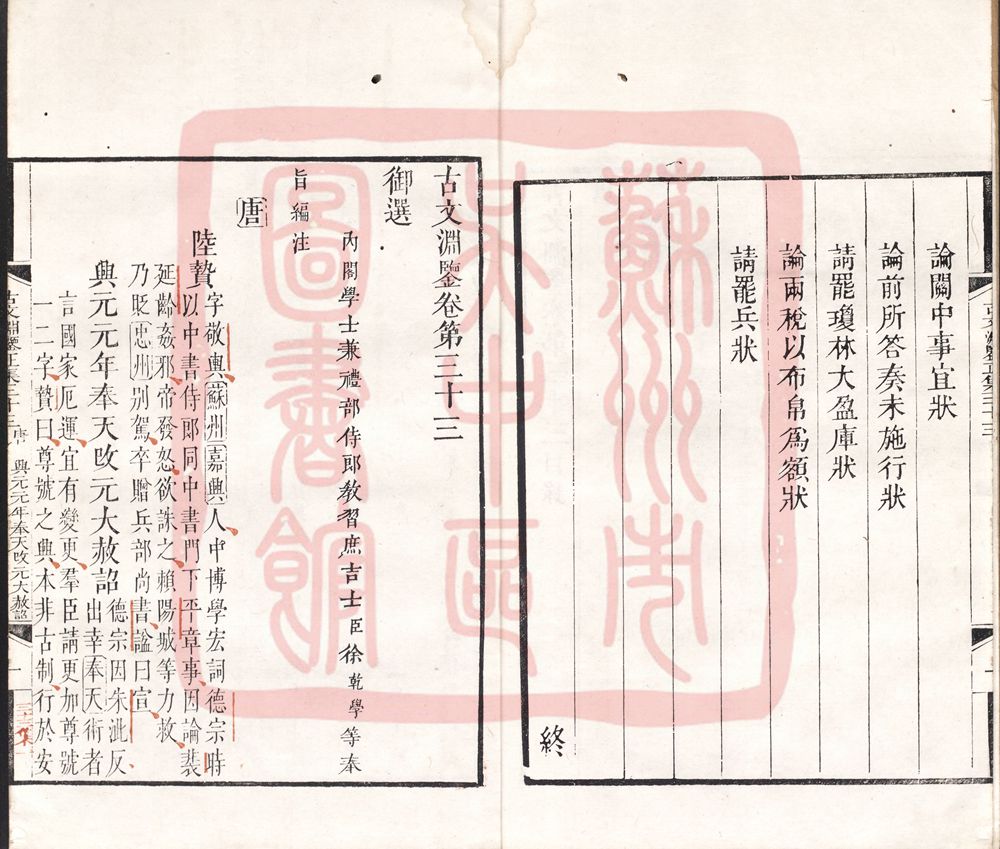 論關中事宜狀
論前所答奏未施行狀
請罷瓊林大盈庫狀
論兩稅以布帛爲額狀
請罷兵狀
終
古文淵鑒卷第三十三
御選
內閣學士兼禮部侍郎教習庶吉士臣徐乾學等奉
旨編注
唐
陸贄字敬輿蘇州嘉興人中博學宏詞德宗時
以中書侍郎同中書門下平章事因論裴
延齡姦邪帝發怒欲誅之賴陽城等力救
乃貶忠州別駕卒贈兵部尚書謚曰宣
興元元年奉天改元大赦詔德宗因朱泚反
出幸奉天術者
言國家厄運宜有變更羣臣請更加尊號
一二字贄曰尊號之興本非古制行於安
唐 興元元年奉天改元大赦詔
一
蘇州市
吳中區
圖書館